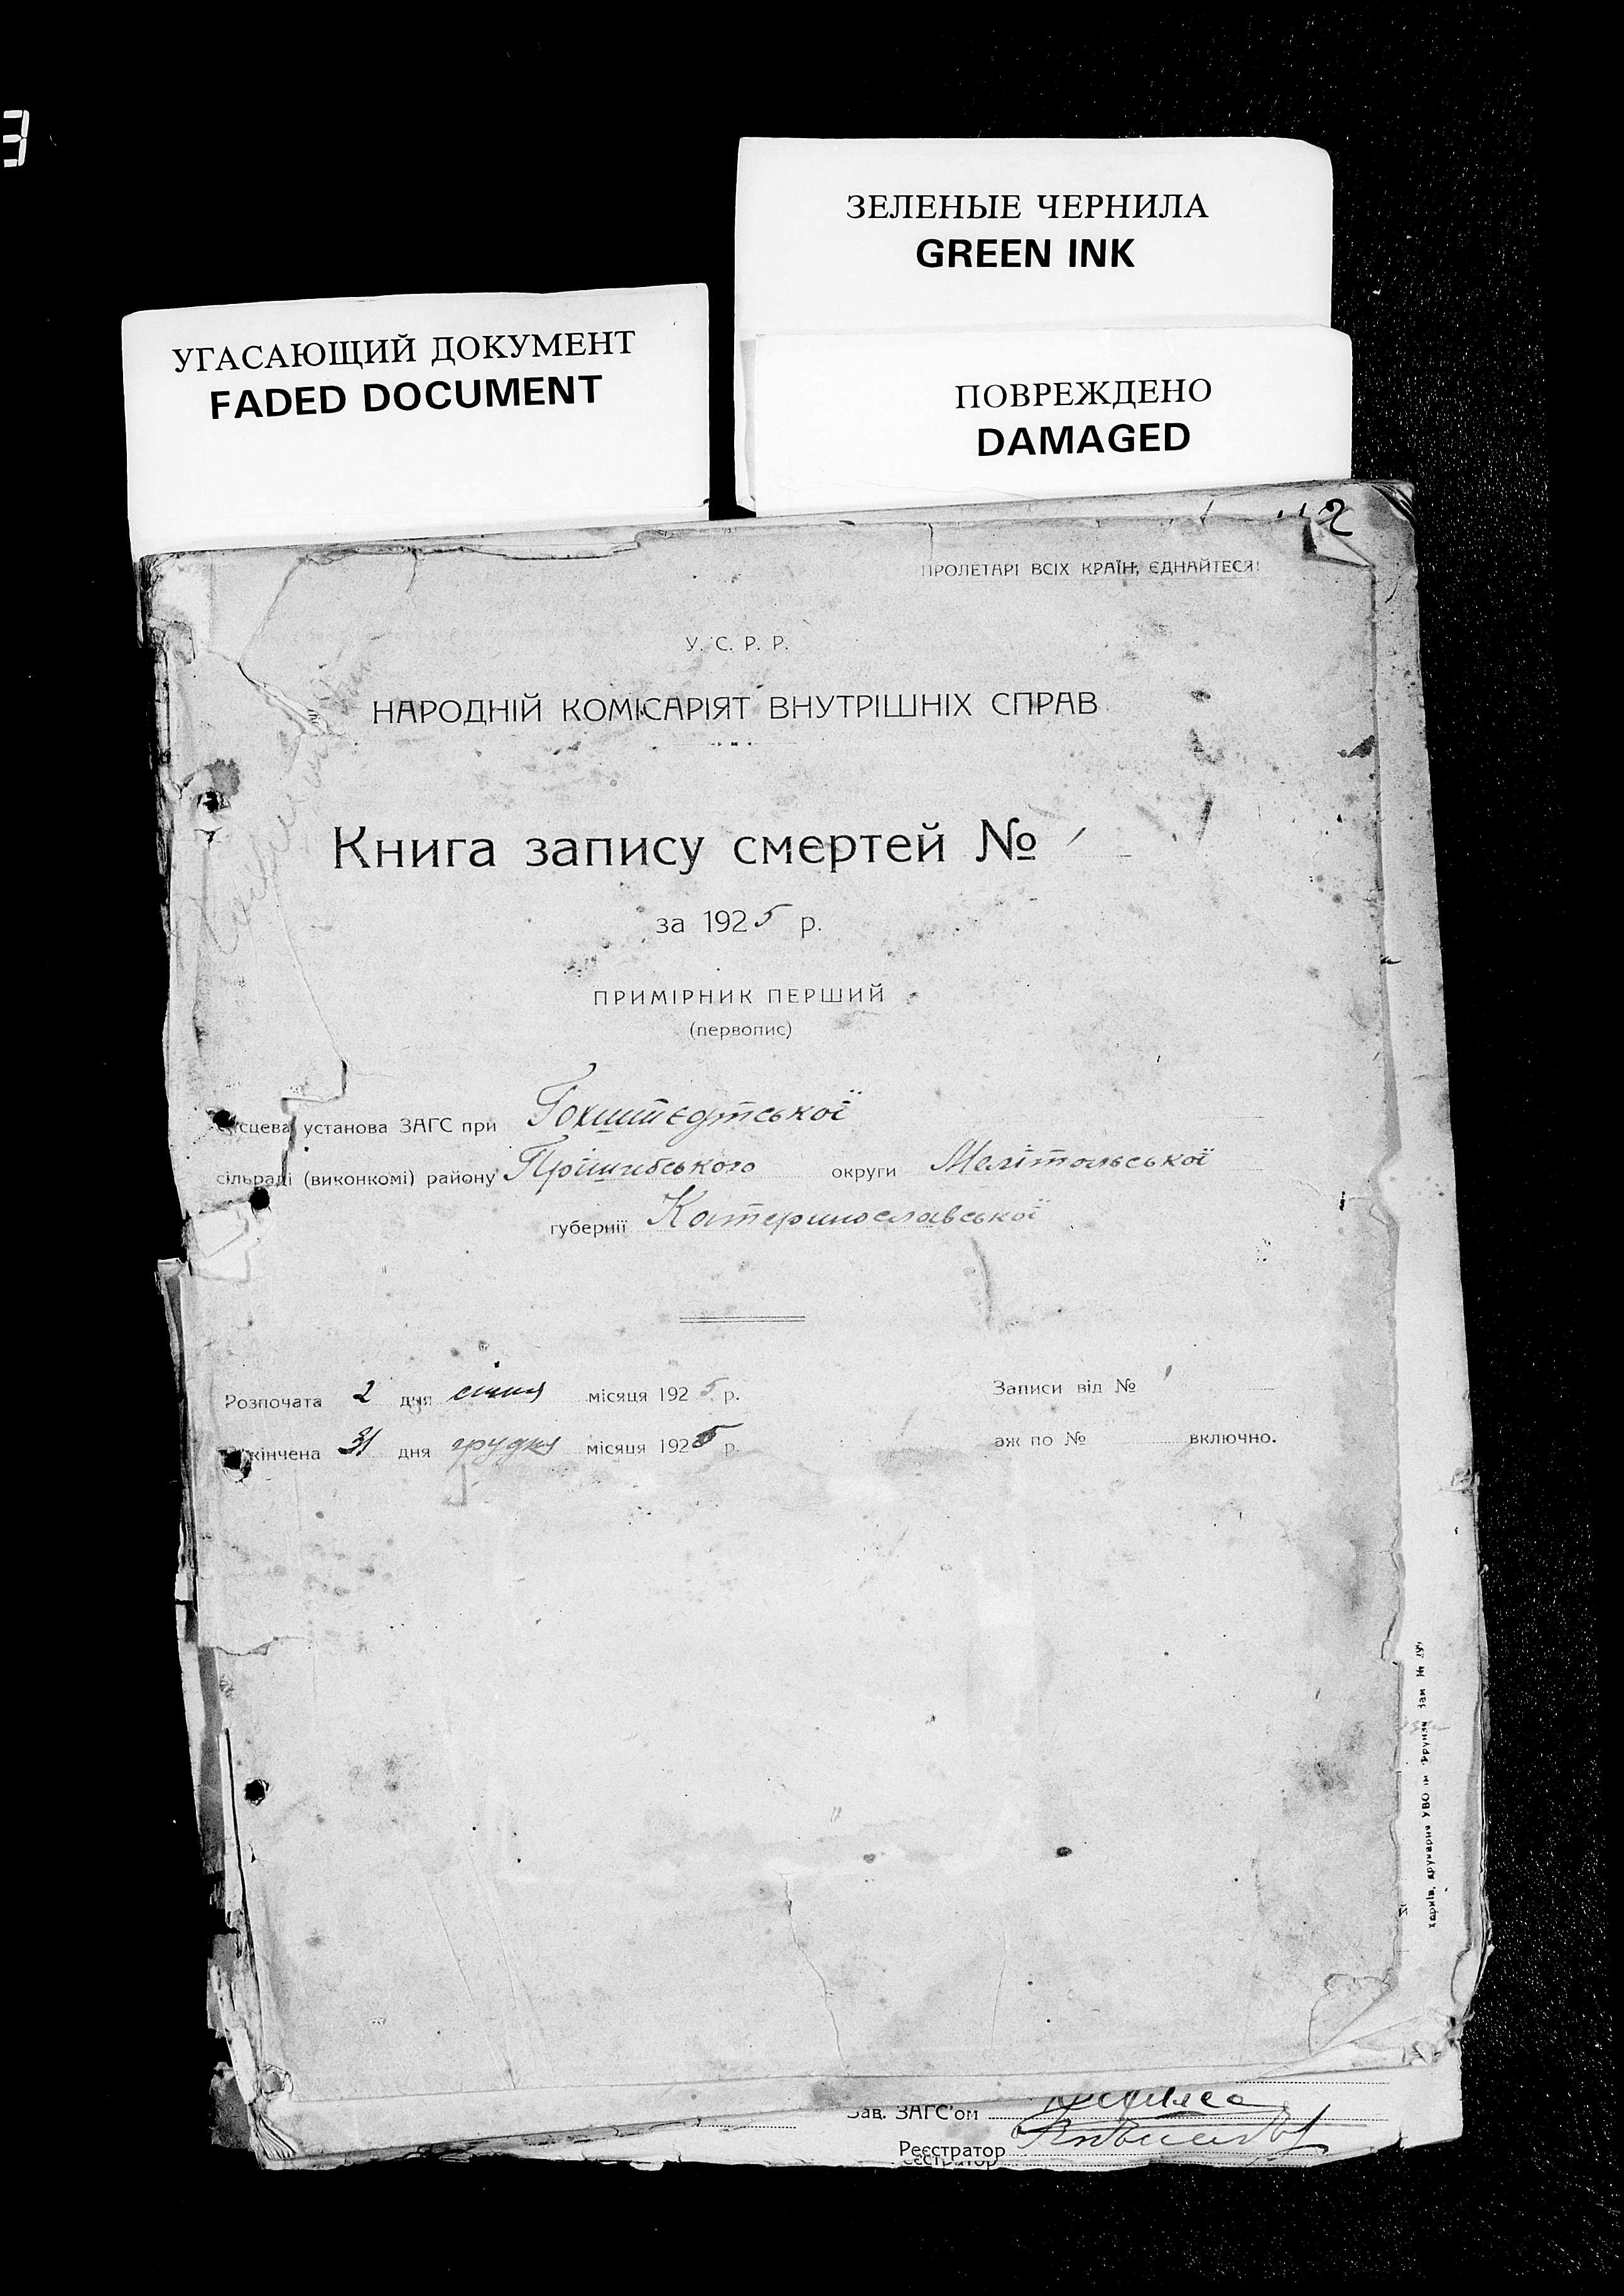 3
ЗЕЛЕНЫЕ ЧЕРНИЛА
GREEN INK
УГАСАЮЩИЙ ДОКУМЕНТ
FADED DOCUMENT
ПОВРЕЖДЕНО
DAMAGED
2
ПРОЛЕТАРІ ВСІХ КРАЇН, ЄДНАЙТЕСЯ!
У. С. Р. Р.
НАРОДНІЙ КОМІСАРІЯТ ВНУТРІШНІХ СПРАВ
Книга запису смертей № 1
за 1925 р.
ПРИМІРНИК ПЕРШИЙ
(первопис)
установа ЗАГС при Гохштедтської
сільраді (виконкомі) району Прішибського округи Мелітопольської
губернії Катеринославської
Розпочата 2 дня січня місяця 1925 р. Записи від № 1
кінчена 31 дня грудня місяця 1925 р. аж по № включно.
Зав. ЗАГС'ом
Реєстратор